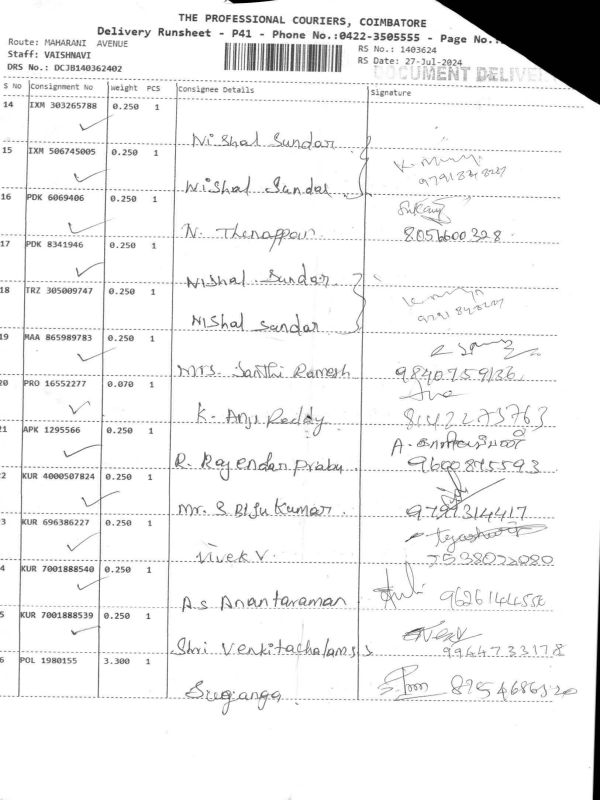 THE PROFESSIONAL COURIERS, COIMBATORE
Delivery Runsheet - P41 - Phone No.:0422-3505555 - Page No.:
Route: MAHARANI AVENUE
RS No.: 1403624
Staff: VAISHNAVI
RS Date: 27-Jul-2024
DRS No.: DCJB140362402
DOCUMENT DELIVE
S No Consignment No Weight PCS Consignee Details Signature
14 IXM 303265788 0.250 1
Nishal Sundar
15 IXM 506745005 0.250 1
Nishal Sundar
16 PDK 6069406 0.250 1
N. Thenappan 8056600328
17 PDK 8341946 0.250 1
Nishal Sundar
18 TRZ 305009747 0.250 1
Nishal Sundar
19 MAA 865989783 0.250 1
Mrs. Santhi Ramesh 9840759136
20 PRO 16552277 0.070 1
K. Anji Reddy 8142273763
21 APK 1295566 0.250 1
R. Rajendar Prabu 9600845593
2 KUR 4000507824 0.250 1
Mr. S Biju Kumar 9791314417
3 KUR 696386227 0.250 1
Vivek V.
4 KUR 7001888540 0.250 1
A.s Anantaraman
5 KUR 7001888539 0.250 1
Shri Venkitachalam s s 9944733178
6 POL 1980155 3.300 1